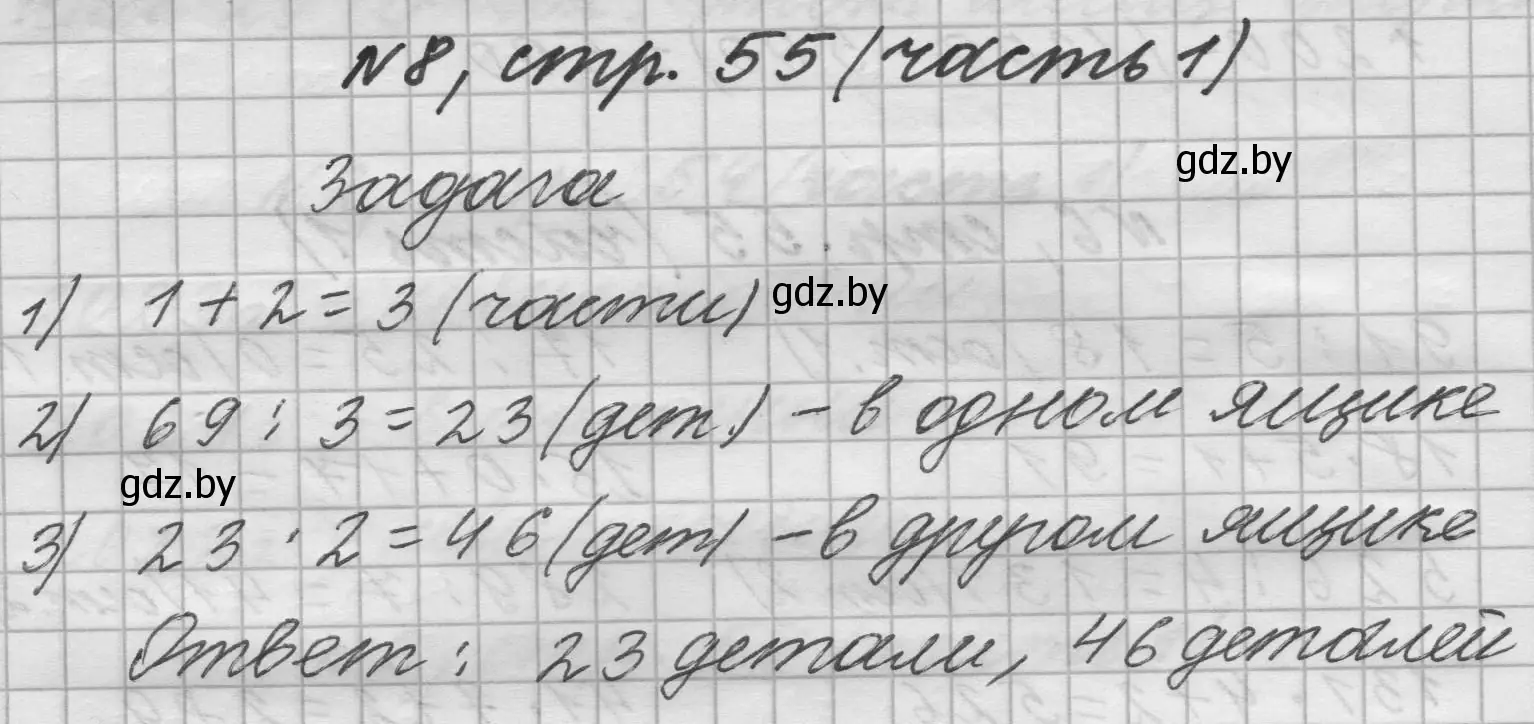 №8, стр. 55 (часть 1)
Задача
gdz.by
1) 1 + 2 = 3 (части)
gdz.by
2) 69 : 3 = 23 (дет.) - в одном ящике
gdz.by
3) 23 · 2 = 46 (дет) - в другом ящике
Ответ : 23 детали, 46 деталей